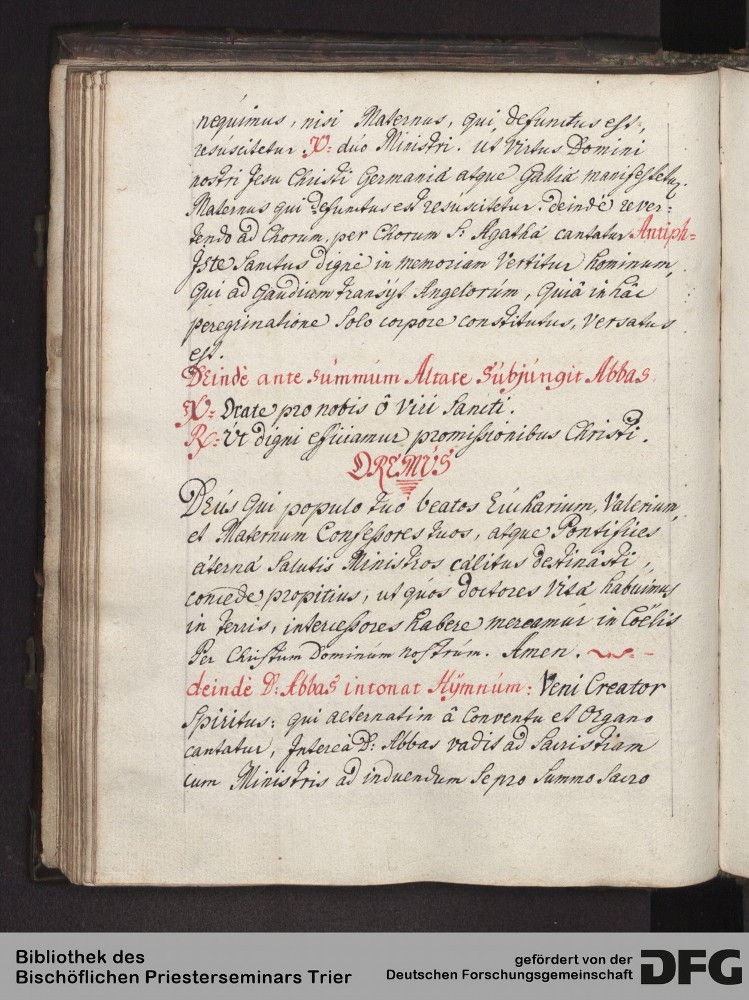 nequimus, nisi Maternus, qui defunctus est,
resuscitetur ℣: duo Ministri. ut virtus Domini
nostri Jesu Christi Germaniâ atque Galliâ manifestetur.
Maternus qui defunctus est resuscitetur. deindè rever=
tendo ad Chorum, per Chorum S: Agathâ cantatur Antiph=
Iste Sanctus dignè in memoriam Vertitur hominum,
qui ad gaudium transijt Angelorúm, quiâ in hâc
peregrinatione solo corpore constitutus, versatus
est.
DEindè ante súmmúm Altare súbjúngit Abbas.
℣: Orate pro nobis ô Viri Sancti.
℟: Út digni efficiamur promissionibus Christi.
OREMÚS
DEús qui populo tuo beatos Eúcharium, Valerium,
et Maternum Confessores tuos, atque Pontifices
æterná Salutis Ministros cælitus destinâsti,
concede propitius, ut quos doctores vitá habuimus
in terris, intercessores habere mereamúr in Coëlis
Per Christum Dominum nostrúm. Amen.
deindè D: Abbas intonat Hÿmnúm: Veni Creator
Spiritus: qui alternatim â Conventu et Organo
cantatur, Intereà D: Abbas vadit ad Sacristiam
cum Ministris ad induendum se pro Summo Sacro
Bibliothek des
Bischöflichen Priesterseminars Trier
gefördert von der
Deutschen Forschungsgemeinschaft DFG